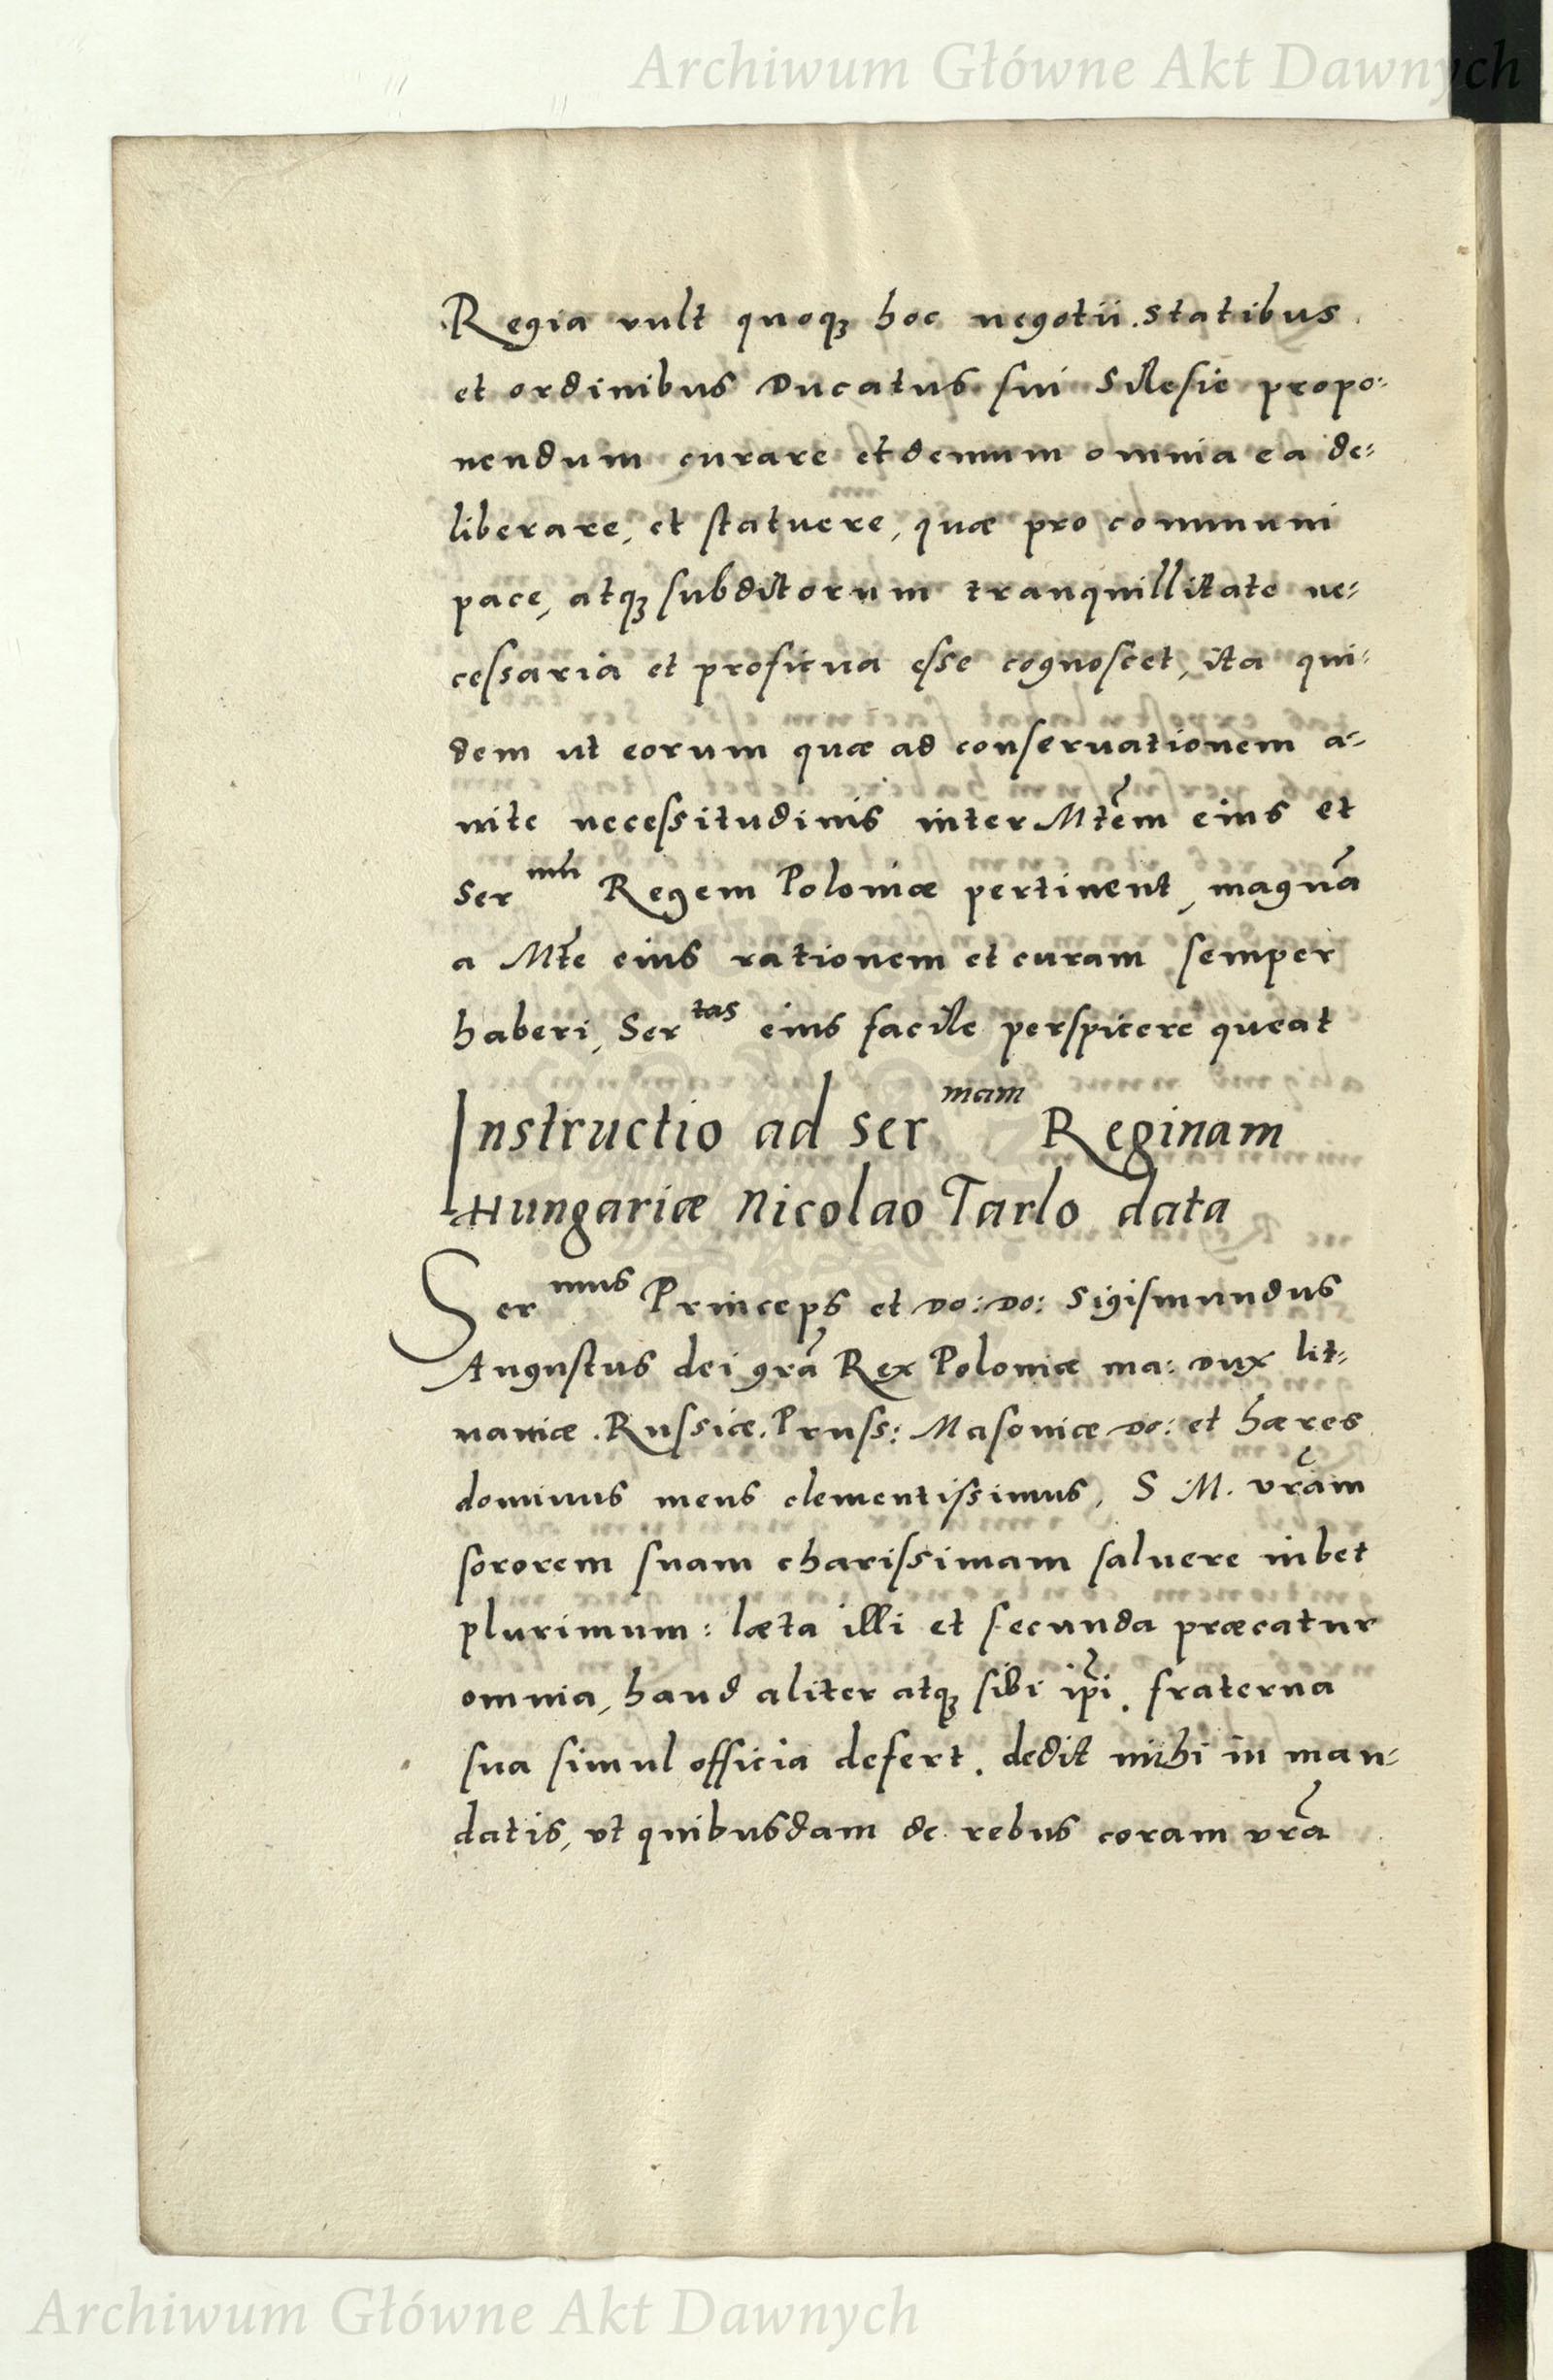 Archiwum Główne Akt Dawnych
Regia vult quoqꝫ hoc negotii. statibus
et ordinibus Ducatus sui Silesie propo:
nendum curare et demum omnia ea de:
liberare, et statuere, quæ pro communi
pace, atqꝫ subditorum tranquillitate ne:
cessaria et proficua esse cognoscet, ita qui:
dem ut eorum quæ ad conservationem a-
mite necessitudinis inter Mtem eius et
Ser Regem Poloniæ pertinent, magnã
a Mte eius rationem et curam semper
haberi, Ser tas eius facile perspicere queat
Instructio ad Ser mam Reginam
Hungariæ Nicolao Tarlo data
Ser mus Princeps et Do: Do: Sigismundus
Augustus dei grã Rex Poloniæ ma: Dux lit-
uaniæ. Russiæ. Pruss: Masoviæ Do: et hæres
dominus meus clementissimus, S M. vrãm
sororem suam charissimam salvere iubet
plurimum: læta illi et secunda præcatur
omnia, haud aliter atqꝫ sibi ipĩ. fraterna
sua simul officia defert. dedit mihi in man-
datis, vt quibusdam de rebus coram vrã
Archiwum Główne Akt Dawnych